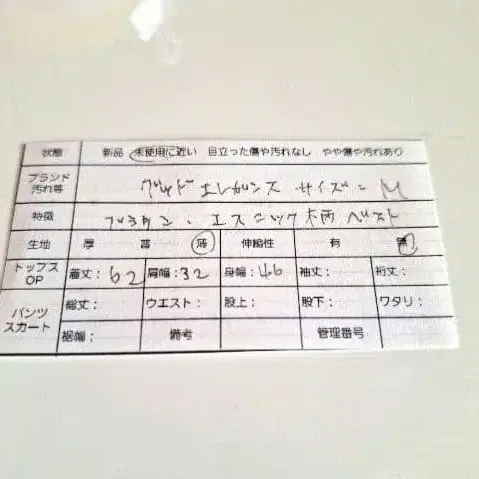 状態 新品 未使用に近い 目立った傷や汚れなし やや傷や汚れあり
ブランド
汚れ等
エレガンス サイズ M
特徴 ブラウン・エスニック柄 ベスト
生地 厚 普 薄 伸縮性 有 無
トップス
OP
着丈：62 肩幅：32 身幅：46 袖丈： 裄丈：
パンツ
スカート
総丈： ウエスト： 股上： 股下： ワタリ：
裾幅： 備考 管理番号